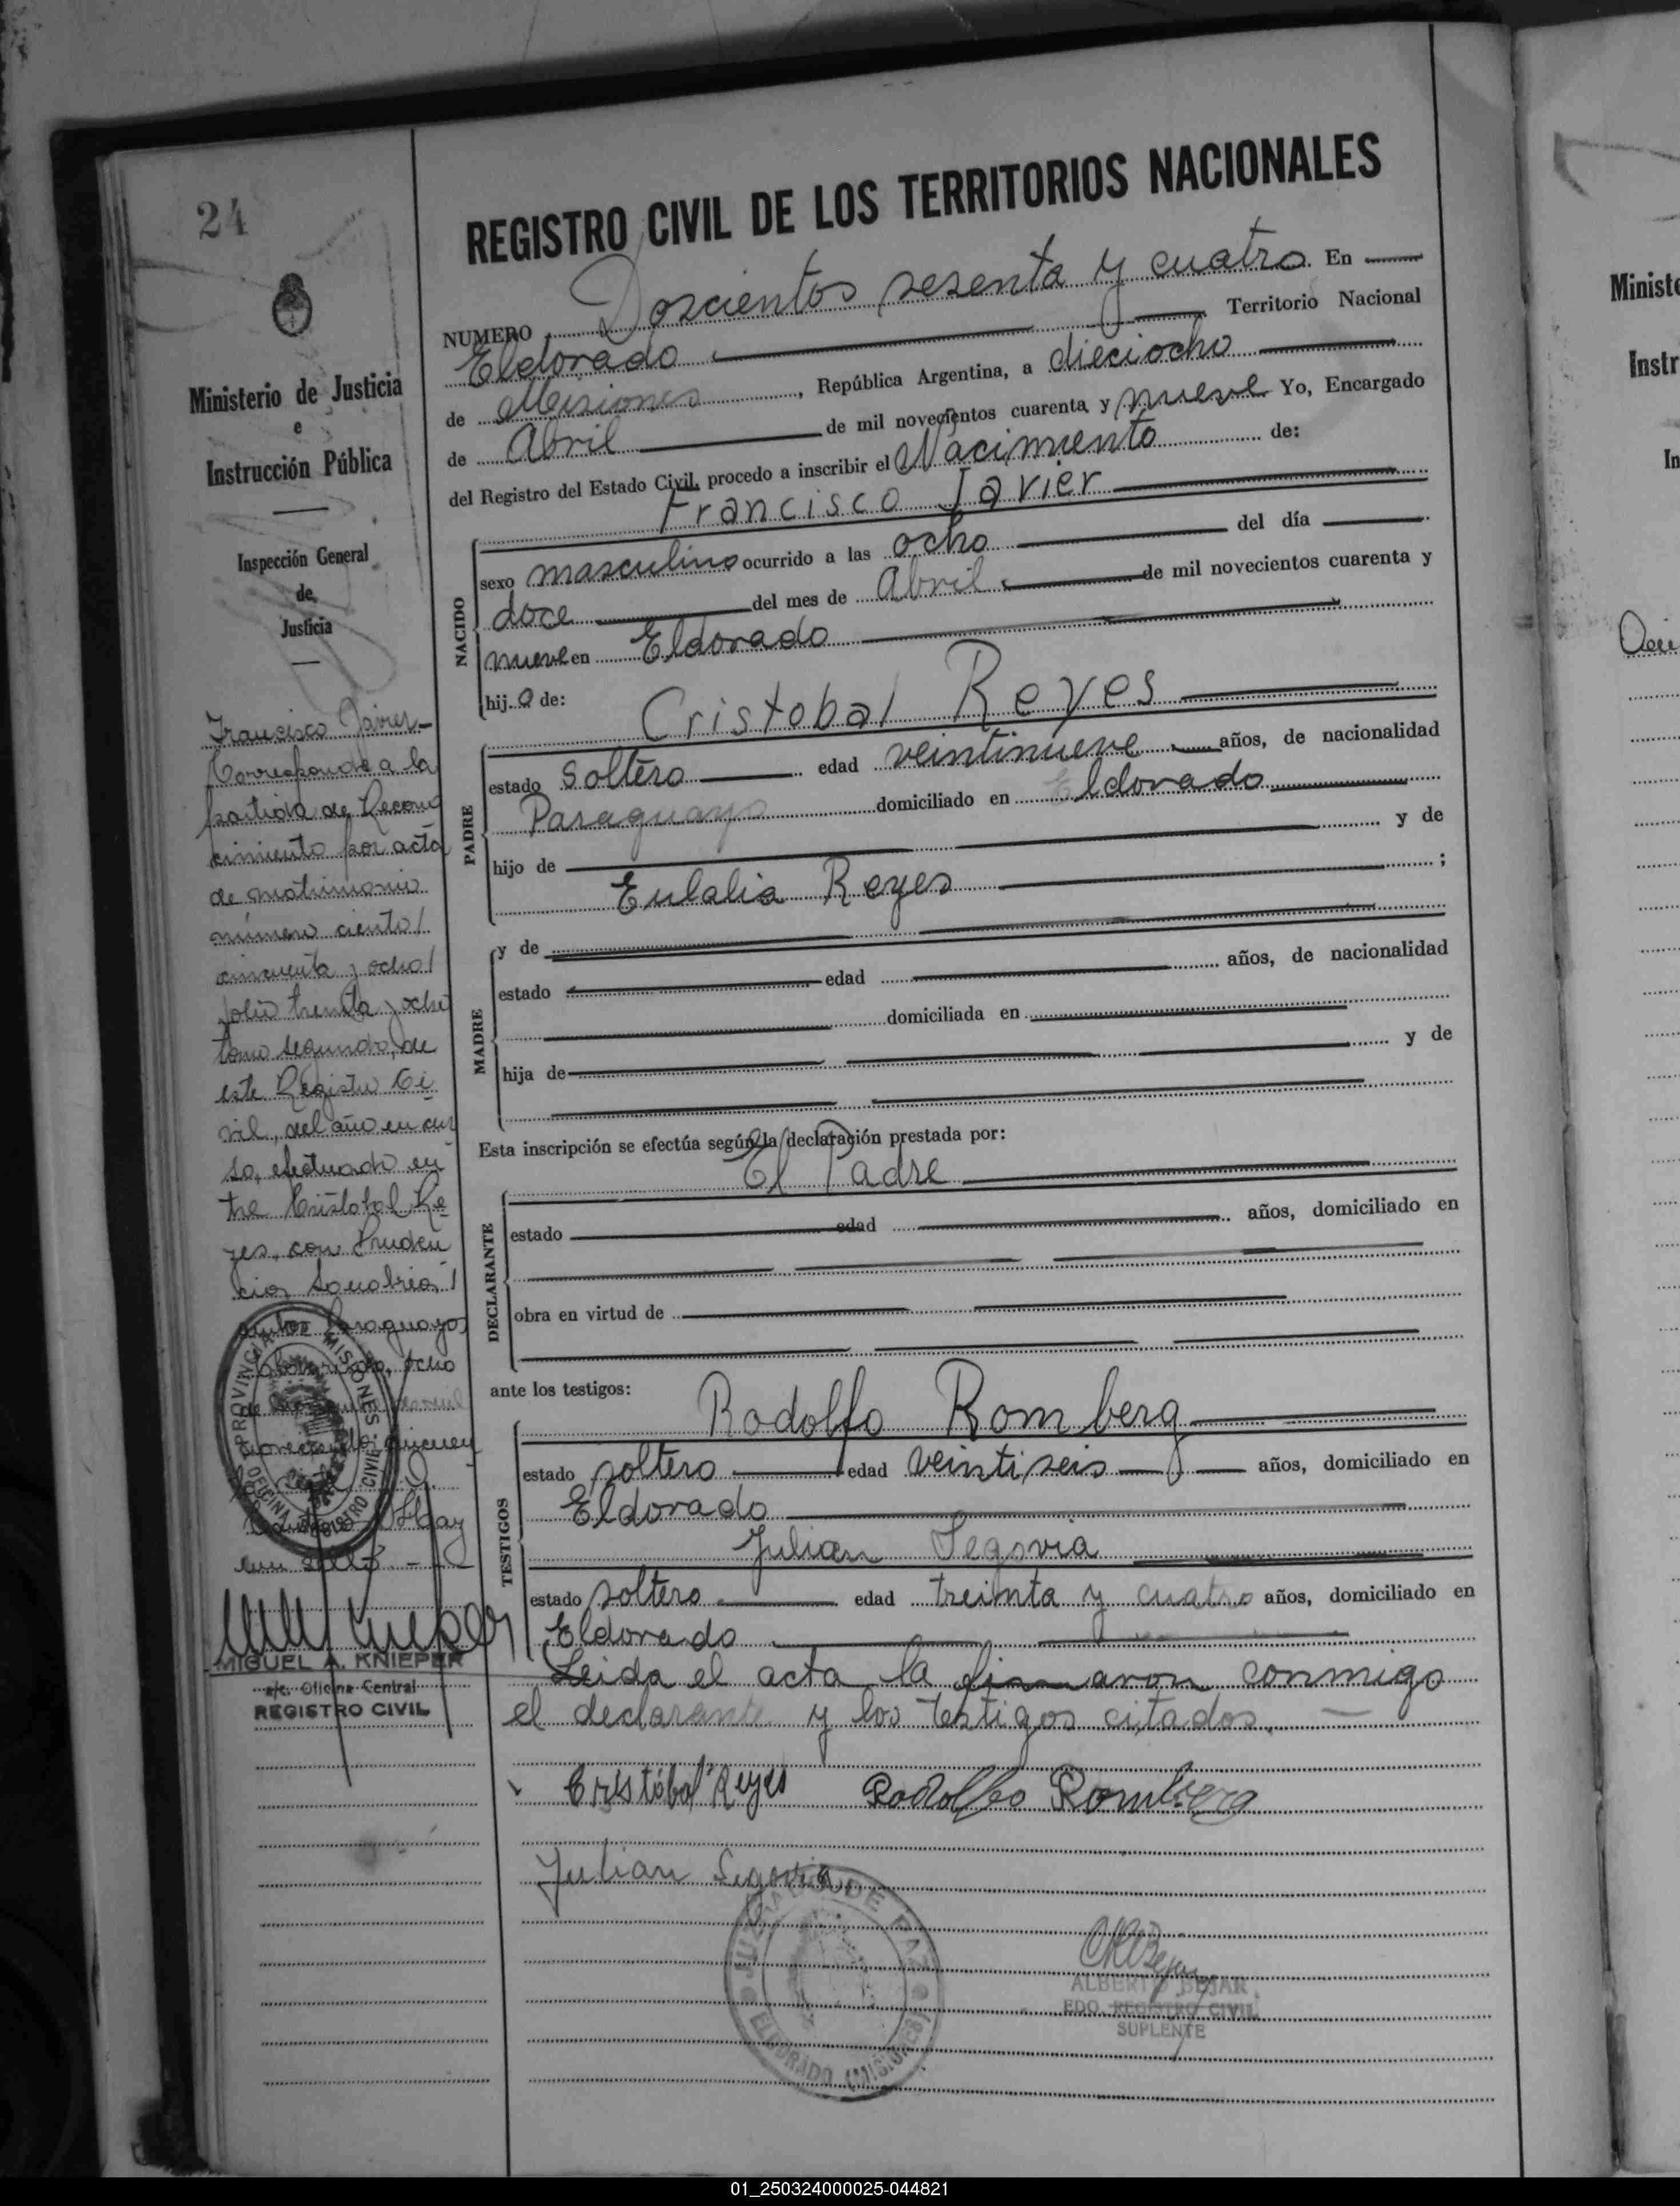 24
REGISTRO CIVIL DE LOS TERRITORIOS NACIONALES
NUMERO Doscientos sesenta y cuatro En
Eldorado Territorio Nacional
de Misiones, República Argentina, a dieciocho
de Abril de mil novecientos cuarenta y nueve Yo, Encargado
del Registro del Estado Civil, procedo a inscribir el Nacimiento de:
Francisco Javier
NACIDO
sexo masculino ocurrido a las ocho del día
doce del mes de Abril de mil novecientos cuarenta y
nueve en Eldorado
hijo de:
Cristobal Reyes
PADRE
estado Soltero edad veintinueve años, de nacionalidad
Paraguayo domiciliado en Eldorado
hijo de y de
Eulalia Reyes ;
y de
MADRE
estado edad años, de nacionalidad
domiciliada en
hija de y de
Esta inscripción se efectúa según la declaración prestada por:
El Padre
DECLARANTE
estado edad años, domiciliado en
obra en virtud de
ante los testigos:
Rodolfo Romberg
TESTIGOS
estado soltero edad veintiseis años, domiciliado en
Eldorado
Julian Segovia
estado soltero edad treinta y cuatro años, domiciliado en
Eldorado
Leida el acta la firmaron conmigo
el declarante y los testigos citados.
Cristóbal Reyes Rodolfo Romberg
Julian Segovia
JUZGADO DE PAZ
ELDORADO (MISIONES)
ALBERTO BEJAR
EDO. REGISTRO CIVIL
SUPLENTE
Ministerio de Justicia
e
Instrucción Pública
Inspección General
de
Justicia
Francisco Javier
Corresponde a la
partida de Recono
cimiento por acta
de matrimonio
número ciento
cincuenta y ocho
folio treinta y ocho
tomo segundo, de
este Registro Ci
vil, del año en cur
so, efectuado en
tre Cristobal Re
yes, con Pruden
cia Sanabria,
ambos Paraguayos
ocho
PROVINCIA MISIONES
OFICINA REGISTRO CIVIL
MIGUEL A. KNIEPER
a/c. Oficina Central
REGISTRO CIVIL
01_250324000025-044821